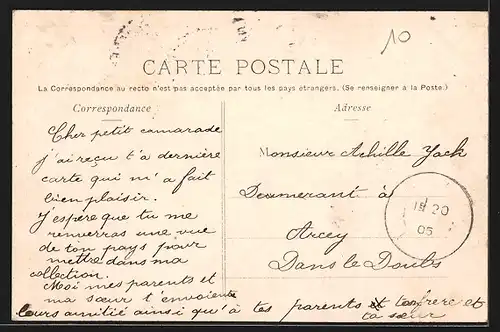 10
CARTE POSTALE
La Correspondance au recto n'est pas acceptée par tous les pays étrangers. (Se renseigner à la Poste.)
Correspondance
Cher petit camarade
j'ai reçu t'a dernière
carte qui m'a fait
bien plaisir.
J'yspère que tu me
renverras une vue
de ton pays pour
mettre dans ma
collection.
Moi mes parents et
ma sœur t'envoient
leurs amitié ainsi qu'à tes parents et ton frère et
ta sœur
Adresse
Monsieur Achille Jack
Deumerant à
Arcey
Dans le Doubs
20
05